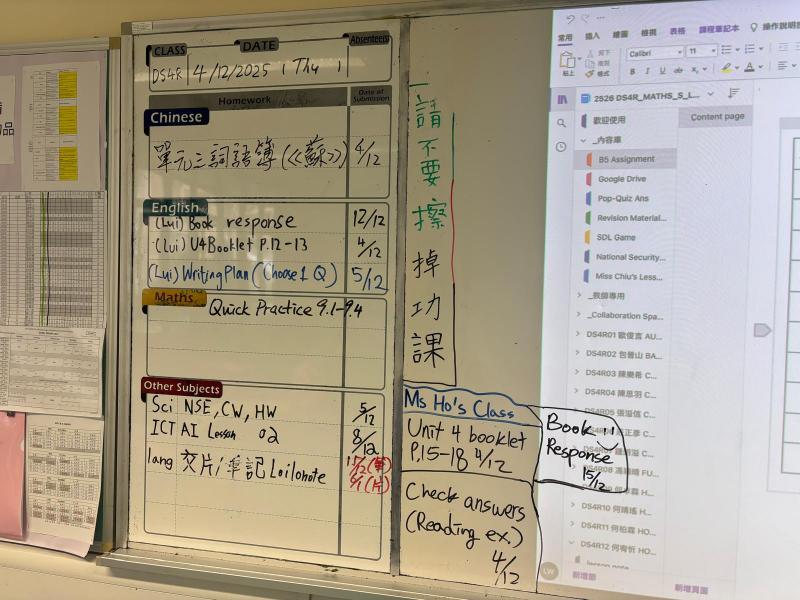 CLASS
DATE
Absentees
DS4R
4/12/2025
Thu
Homework
Date of Submission
Chinese
單元三詞語簿(《蘇》) 4/12
English
(Lui) Book response 12/12
(Lui) U4 Booklet P.12-13 4/12
(Lui) Writing Plan (Choose 1 Q) 5/12
Maths
Quick Practice 9.1-9.4
Other Subjects
Sci NSE, CW, HW 5/12
ICT AI Lesson 02 8/12
lang 交片/筆記 Loilonote
請不要擦掉功課
Ms Ho's Class
Unit 4 booklet
P.15-18 4/12
Check answers
(Reading ex.)
4/12
Book
Response
15/12
常用 插入 繪圖 檢視 表格 課程筆記本 操作說明
貼上
剪下
複製
格式
Calibri 11
B I U ab x
2526 DS4R_MATHS_S_L...
歡迎使用
_內容庫
B5 Assignment
Google Drive
Pop-Quiz Ans
Revision Material...
SDL Game
National Security...
Miss Chiu's Less...
_教師專用
_Collaboration Spa...
DS4R01 歐俊言 AU...
DS4R02 包晉山 BA...
DS4R03 陳樂希 C...
DS4R04 陳思羽 C...
DS4R05 張溢信 C...
DS4R10 何靖瑤 H...
DS4R11 何柏霖 HO...
DS4R12 何宥忻 HO...
lesson note
新增節
LW
Content page
新增頁面